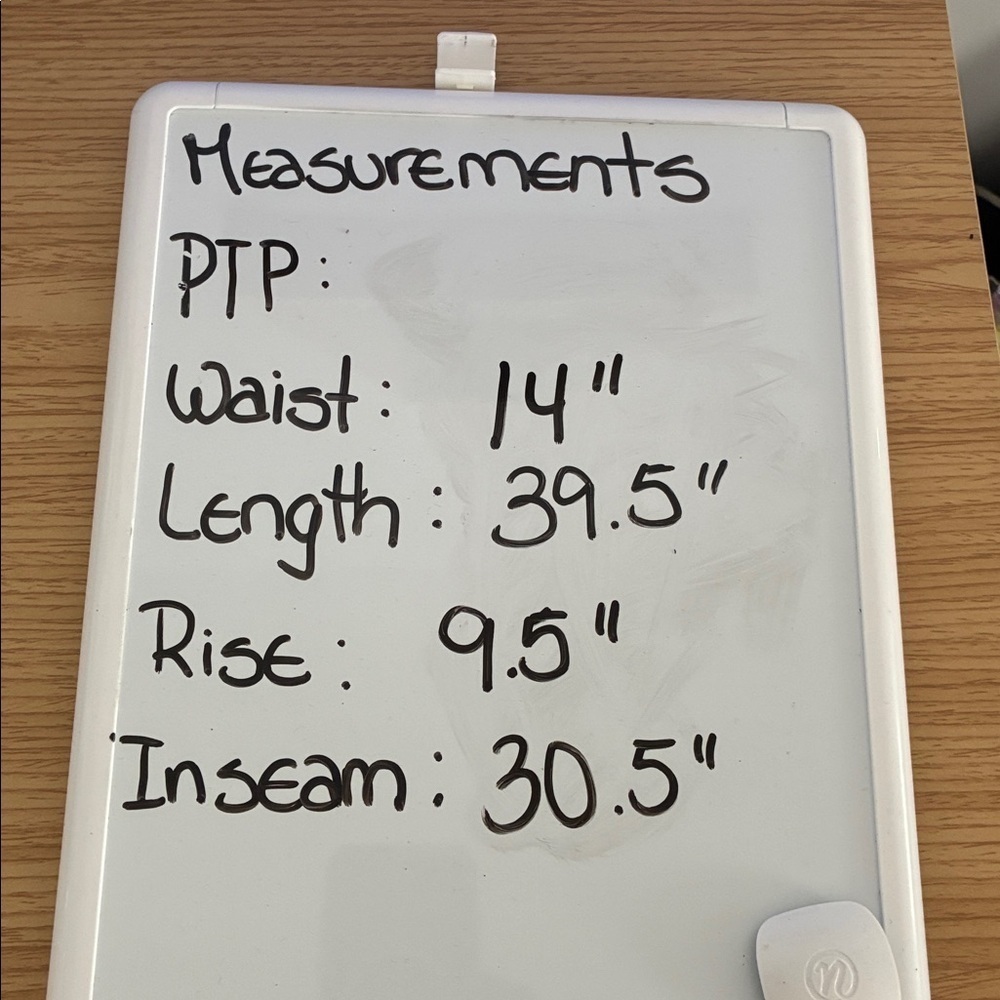 Measurements
PTP:
Waist: 14"
Length: 39.5"
Rise: 9.5"
Inseam: 30.5"
n